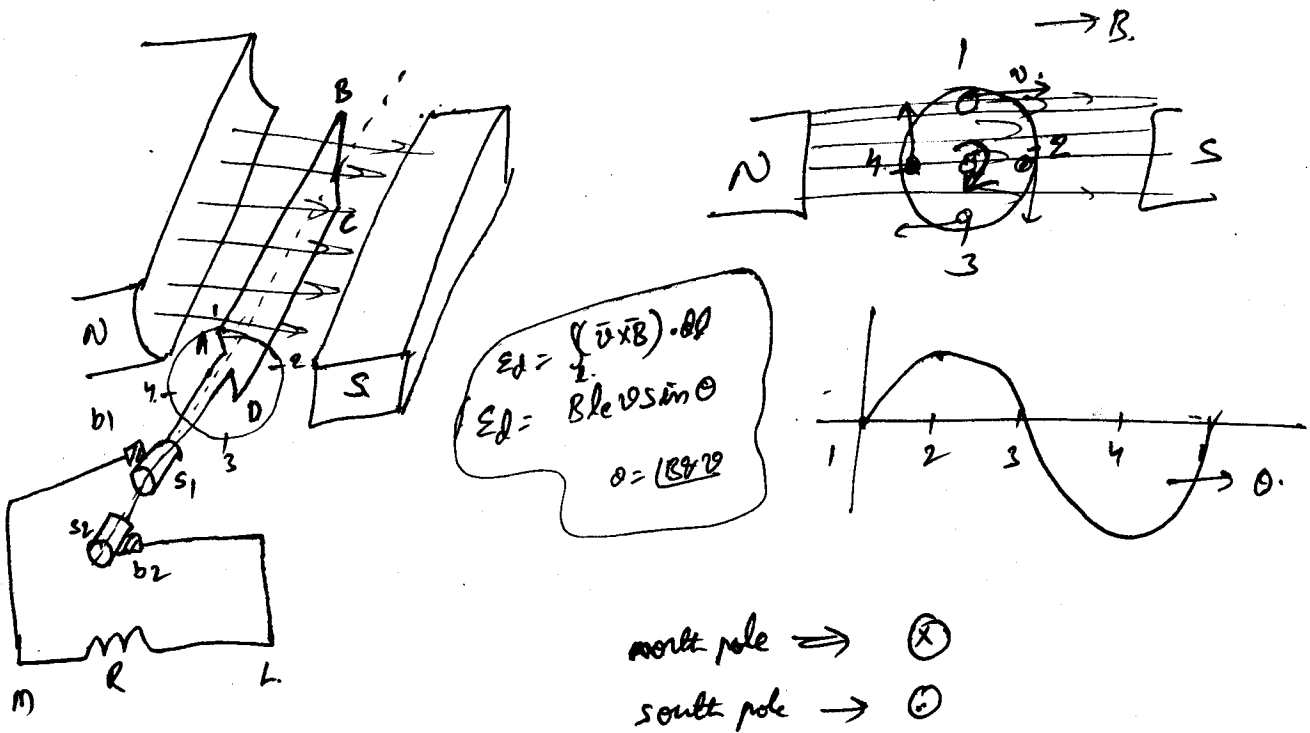 B
C
N
A
1
2
S
4
D
3
b1
S1
S2
b2
M
R
L.
→ B.
1
v
N
4
2
S
3
Ed = ∫ (v̄ × B̄) · dl
Ed = Blev sin θ
θ = ∠B & v
1 2 3 4 1
→ θ.
north pole ⇒ ⊗
south pole → ⊙